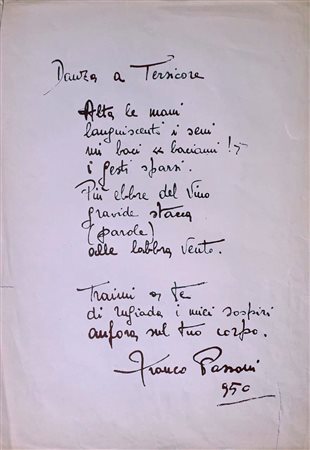 Danza a Tersicore
Alta le mani
languiscenti i seni
mi baci « baciami !»
i gesti sparsi.
Più ebbre del vino
gravide stacca
(parole)
alle labbra vento.
Traimi a te
di rugiada i miei sospiri
anfora sul tuo corpo.
Franco Passoni
950